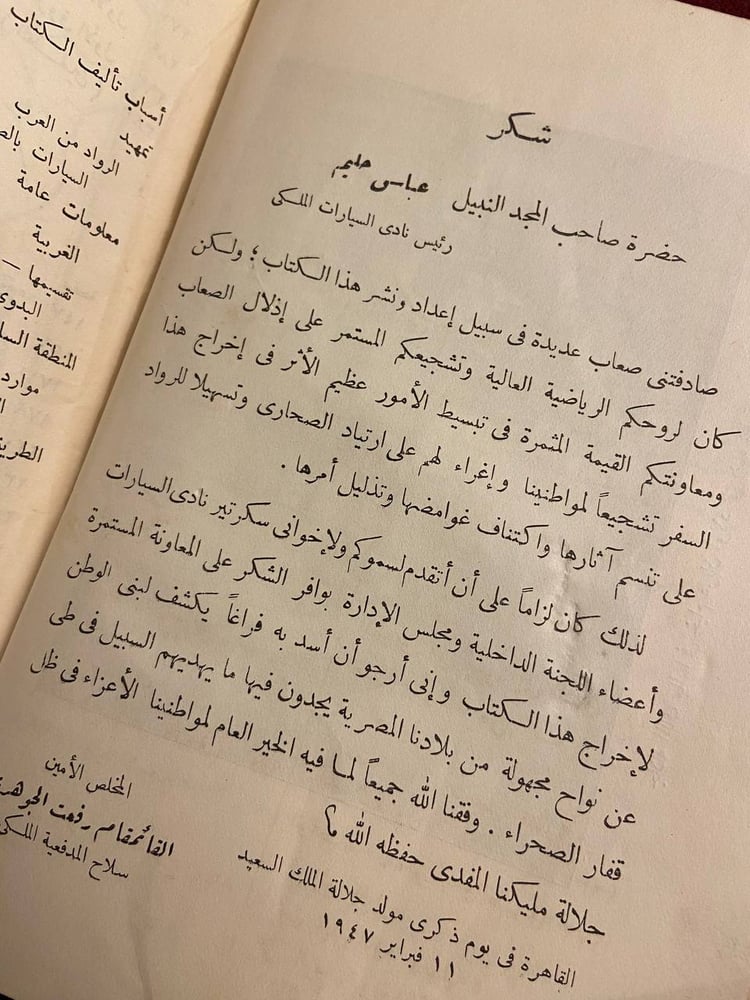 أسباب تأليف الكتاب
تمهيد
الرواد من العرب
السيارات
معلومات عامة
الغربية
تقسيمها —
المنطقة
شكر
حضرة صاحب المجد النبيل عباس حليم
رئيس نادى السيارات الملكى
صادفتنى صعاب عديدة فى سبيل إعداد ونشر هذا الكتاب ؛ ولكن
كان لروحكم الرياضية العالية وتشجيعكم المستمر على إذلال الصعاب
ومعاونتكم القيمة المثمرة فى تبسيط الأمور عظيم الأثر فى إخراج هذا
السفر تشجيعاً لمواطنينا وإغراء لهم على ارتياد الصحارى وتسهيلا للرواد
على تنسم آثارها واكتناف غوامضها وتذليل أمرها .
لذلك كان لزاماً على أن أتقدم لسموكم ولإخوانى سكرتير نادى السيارات
وأعضاء اللجنة الداخلية ومجلس الإدارة بوافر الشكر على المعاونة المستمرة
لإخراج هذا الكتاب وإنى أرجو أن أسد به فراغاً يكشف لبنى الوطن
عن نواح مجهولة من بلادنا المصرية يجدون فيها ما يهديهم السبيل فى طى
قفار الصحراء . وفقنا الله جميعاً لما فيه الخير العام لمواطنينا الأعزاء فى ظل
جلالة مليكنا المفدى حفظه الله
المخلص الأمين
القائمقام رفعت الجوهرى
سلاح المدفعية الملكى
القاهرة فى يوم ذكرى مولد جلالة الملك السعيد
١١ فبراير ١٩٤٧